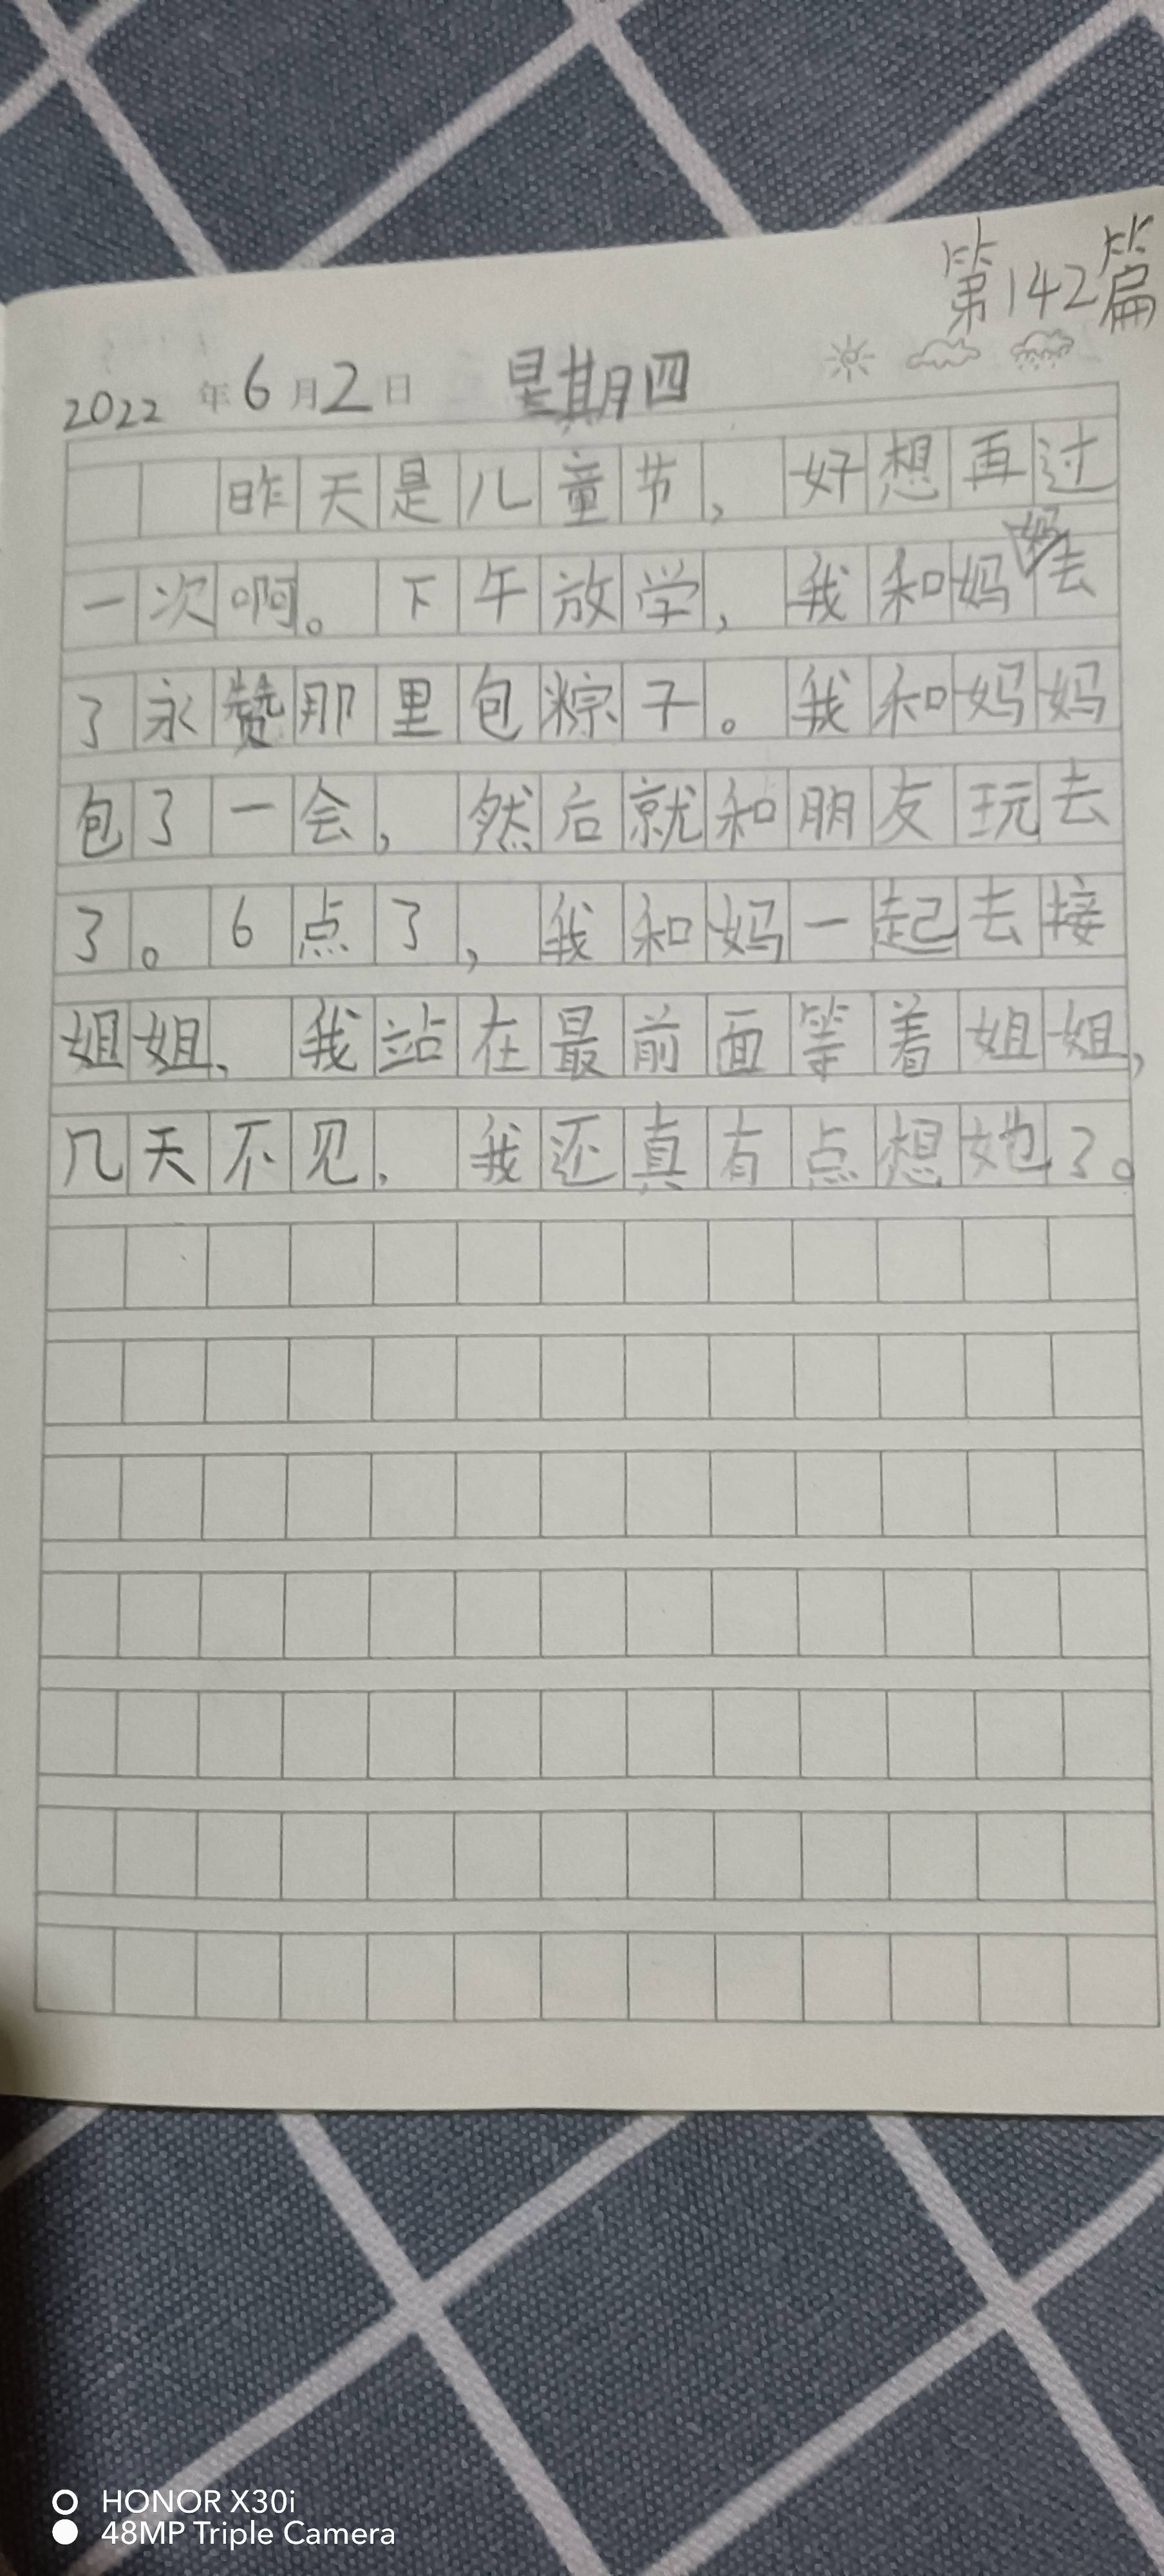 第142篇
2022年6月2日 星期四
昨天是儿童节，好想再过
一次啊。下午放学，我和妈妈去
了永赞那里包粽子。我和妈妈
包了一会，然后就和朋友玩去
了。6点了，我和妈一起去接
姐姐、我站在最前面等着姐姐，
几天不见，我还真有点想她了。
HONOR X30i
48MP Triple Camera